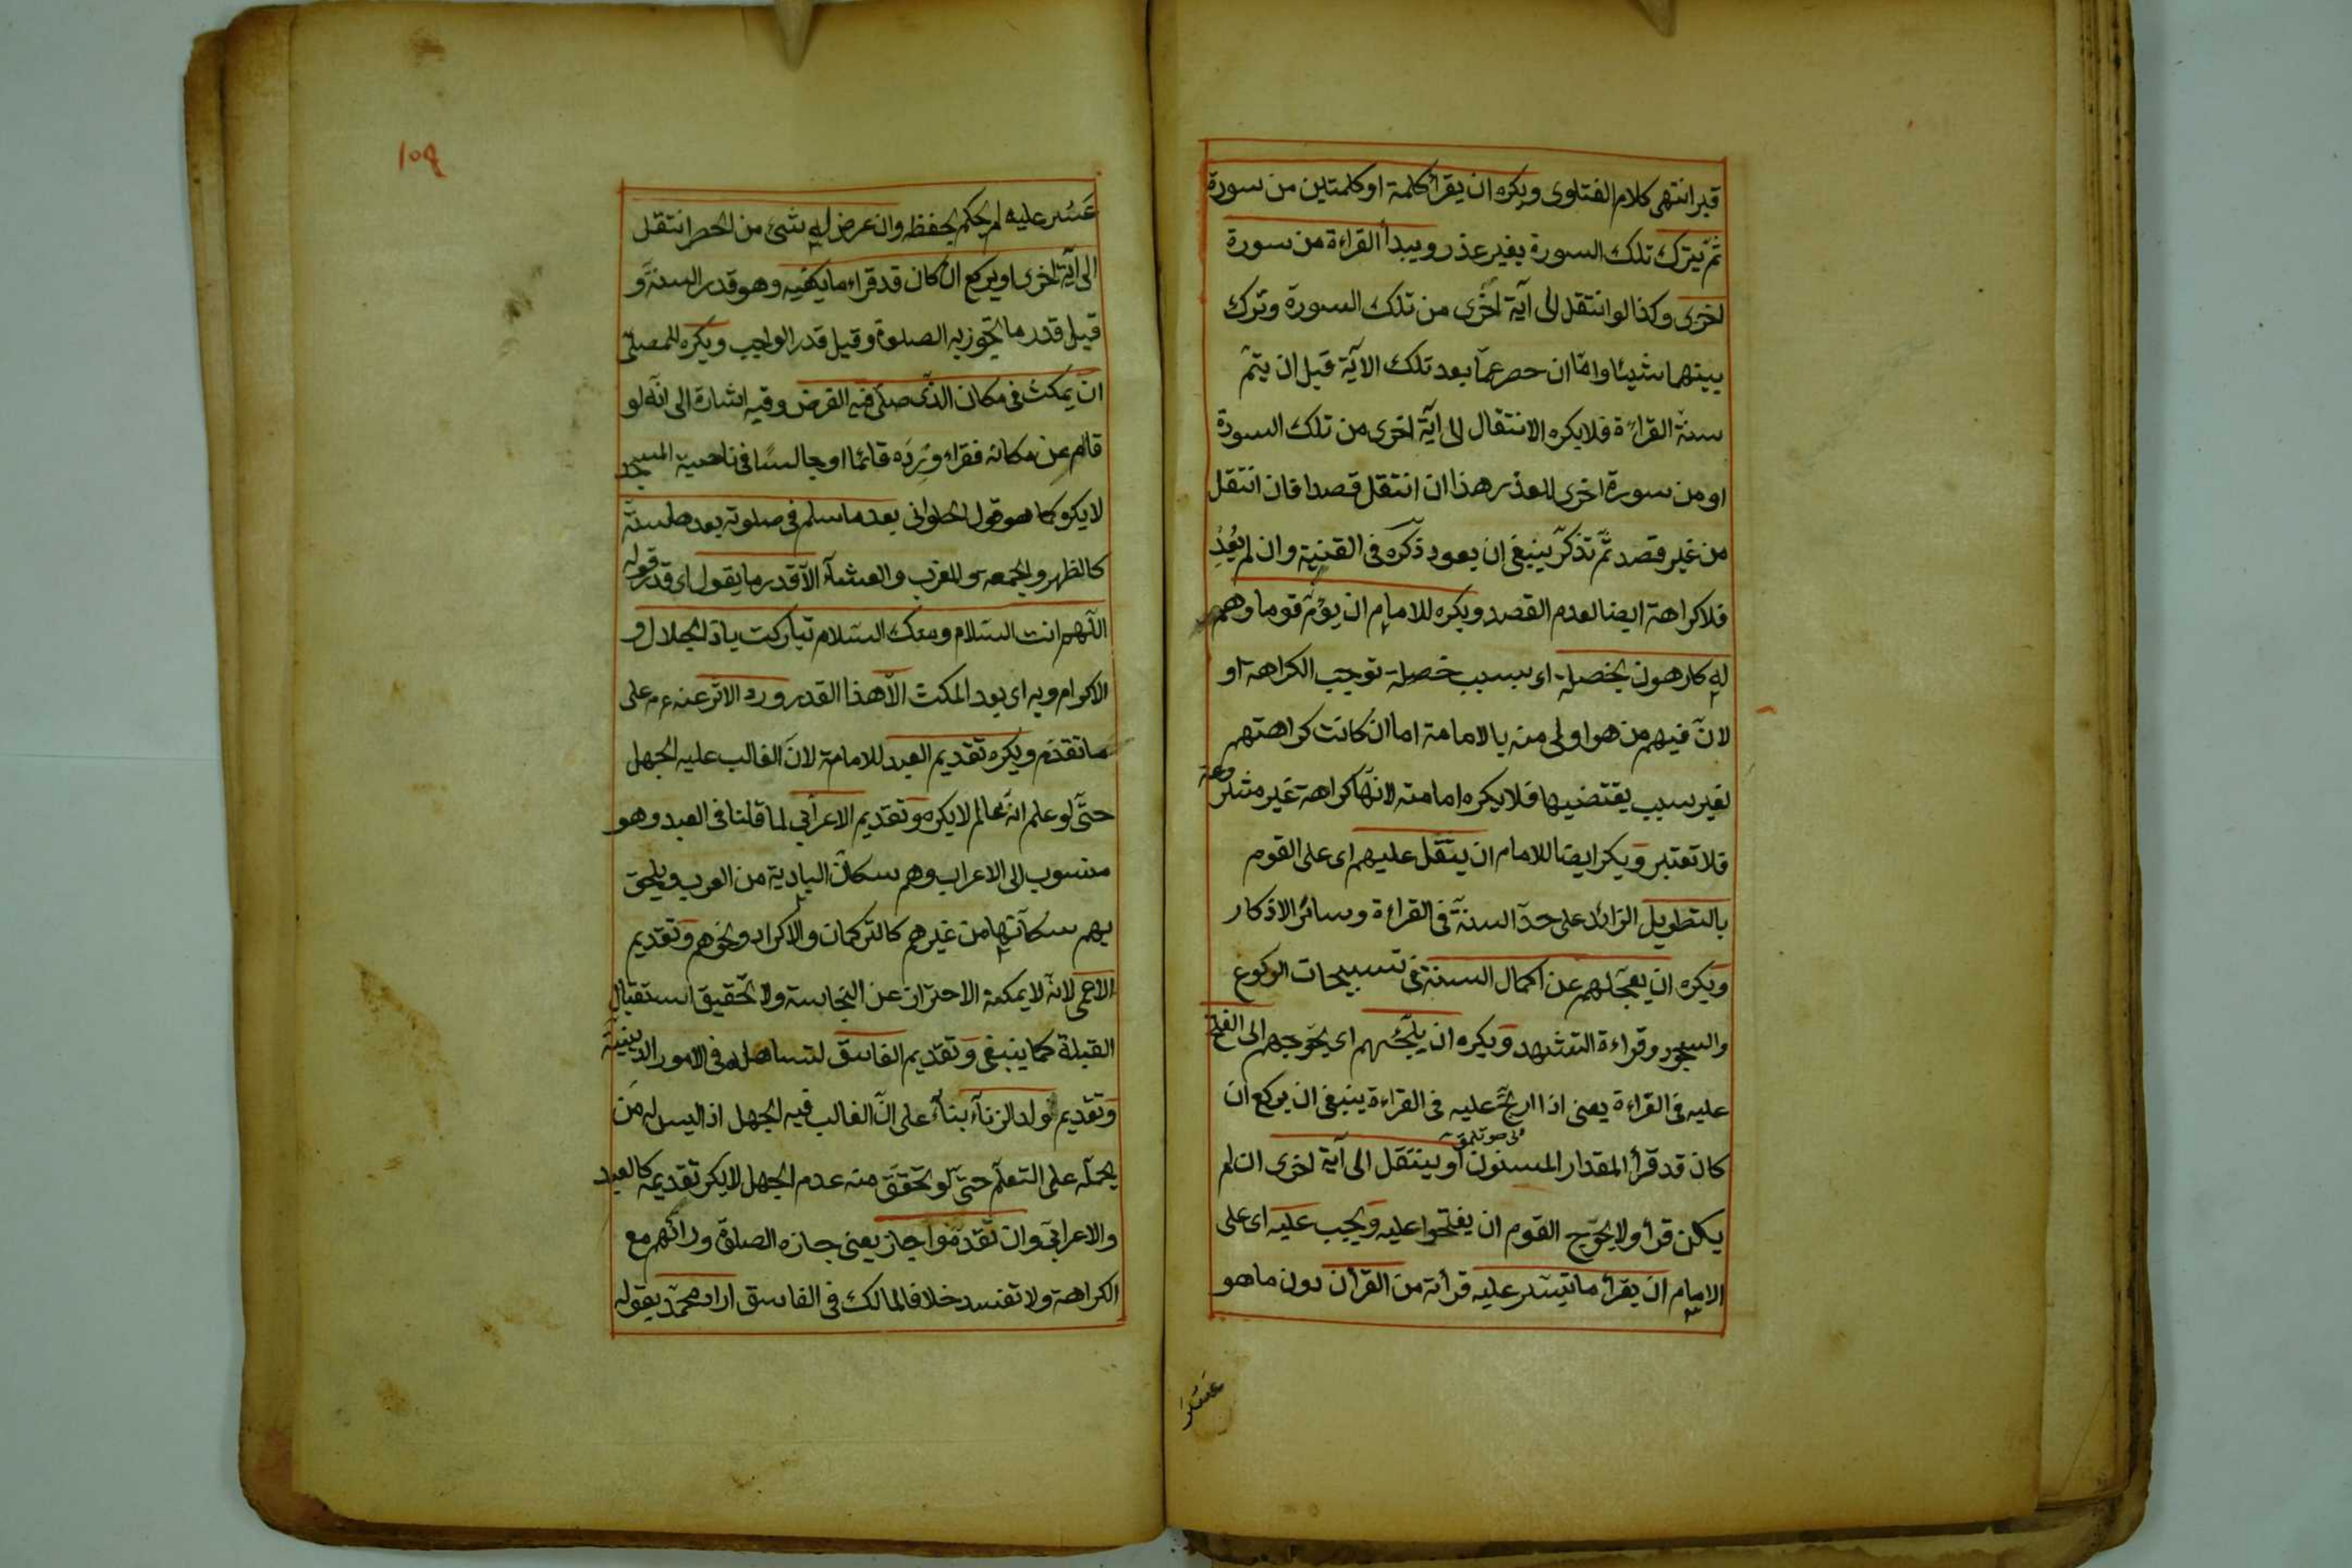 قبر انتهى كلام الفتاوى ويكره ان يقرأ كلمة او كلمتين من سورة
ثمّ يترك تلك السورة بغير عذر ويبدأ القراءة من سورة
اخرى وكذا لو انتقل الى آية اخرى من تلك السورة وترك
بينهما شيئا وامّا ان حصر عمّا بعد تلك الآية قبل ان يتمّ
سنة القراءة فلا يكره الانتقال الى آية اخرى من تلك السورة
او من سورة اخرى للعذر هذا ان انتقل قصدا فان انتقل
من غير قصد ثمّ تذكّر ينبغى ان يعود ذكره فى القنية وان لم يعد
فلا كراهة ايضا لعدم القصد ويكره للامام ان يؤمّ قوما وهم
له كارهون بخصلة اى بسبب خصلة توجب الكراهة او
لانّ فيهم من هو اولى منه بالامامة اما ان كانت كراهتهم
لغير سبب يقتضيها فلا يكره امامته لانّها كراهة غير مشروعة
فلا تعتبر ويكر ايضا للامام ان يثقل عليهم اى على القوم
بالتطويل الزائد على حدّ السنّة فى القراءة وسائر الاذكار
ويكره ان يعجّلهم عن اكمال السنة فى تسبيحات الركوع
والسجود وقراءة التشهد ويكره ان يلجئهم اى يحوجهم الى الفتح
عليه فى القراءة يعنى اذا ارتجّ عليه فى القراءة ينبغى ان يركع ان
كان قد قرأ المقدار المسنون او ينتقل الى آية اخرى ان لم
يكن قرأ ولا يحوّج القوم ان يفتحوا عليه ويجب عليه اى على
الامام ان يقرأ ما تيسّر عليه قرأته من القرأن دون ما هو
عَسُرَ
١٥٩
عَسُر عليه لم يحكم بحفظه وان عرض له شئ من الحصر انتقل
الى آية اخرى او يركع ان كان قد قراء ما يكفيه وهو قدر السنة و
قيل قدر ما تجوز به الصلوة وقيل قدر الواجب ويكره للمصلّى
ان يمكث فى مكان الذّى صلّى فيه الفرض وفيه اشارة الى انّه لو
قام عن مكانه فقراء وِرْدَه قائما او جالسًا فى ناحية المسجد
لا يكره كما هو قول الحلوانى بعد ما سلم فى صلوته بعدها سنة
كالظهر والجمعه والمغرب والعشآء الّا قدر ما يقول اى قدر قوله
اللّهم انت السّلام ومنك السّلام تباركت يا ذا الجلال و
الاكرام وبه اى بعد المكث الّا هذا القدر ورد الاثر عنه عم على
ما تقدّم ويكره تقديم العبد للامامة لانّ الغالب عليه الجهل
حتّى لو علم انّه عالم لا يكره وتقديم الاعرابّى لما قلنا فى العبد وهو
منسوب الى الاعراب وهم سكّان البادية من العرب ويلحق
بهم سكّانها من غيرهم كالتركمان والاكراد ونحوهم وتقديم
الاعمى لانه لا يمكنه الاحتراز عن النجاسة ولا تحقيق استقبال
القبلة كما ينبغى وتقديم الفاسق لتساهله فى الامور الدينيّة
وتقديم ولد الزنآء بناءً على انّ الغالب فيه الجهل اذ اليس له من
يحمله على التعلّم حتّى لو تحقّق منه عدم الجهل لا يكر تقديمه كالعبد
والاعرابّى وان تقدّموا جاز يعنى جازه الصلوة ورائهم مع
الكراهة ولا تفسد خلافا لمالك فى الفاسق اراد محمّد بقوله